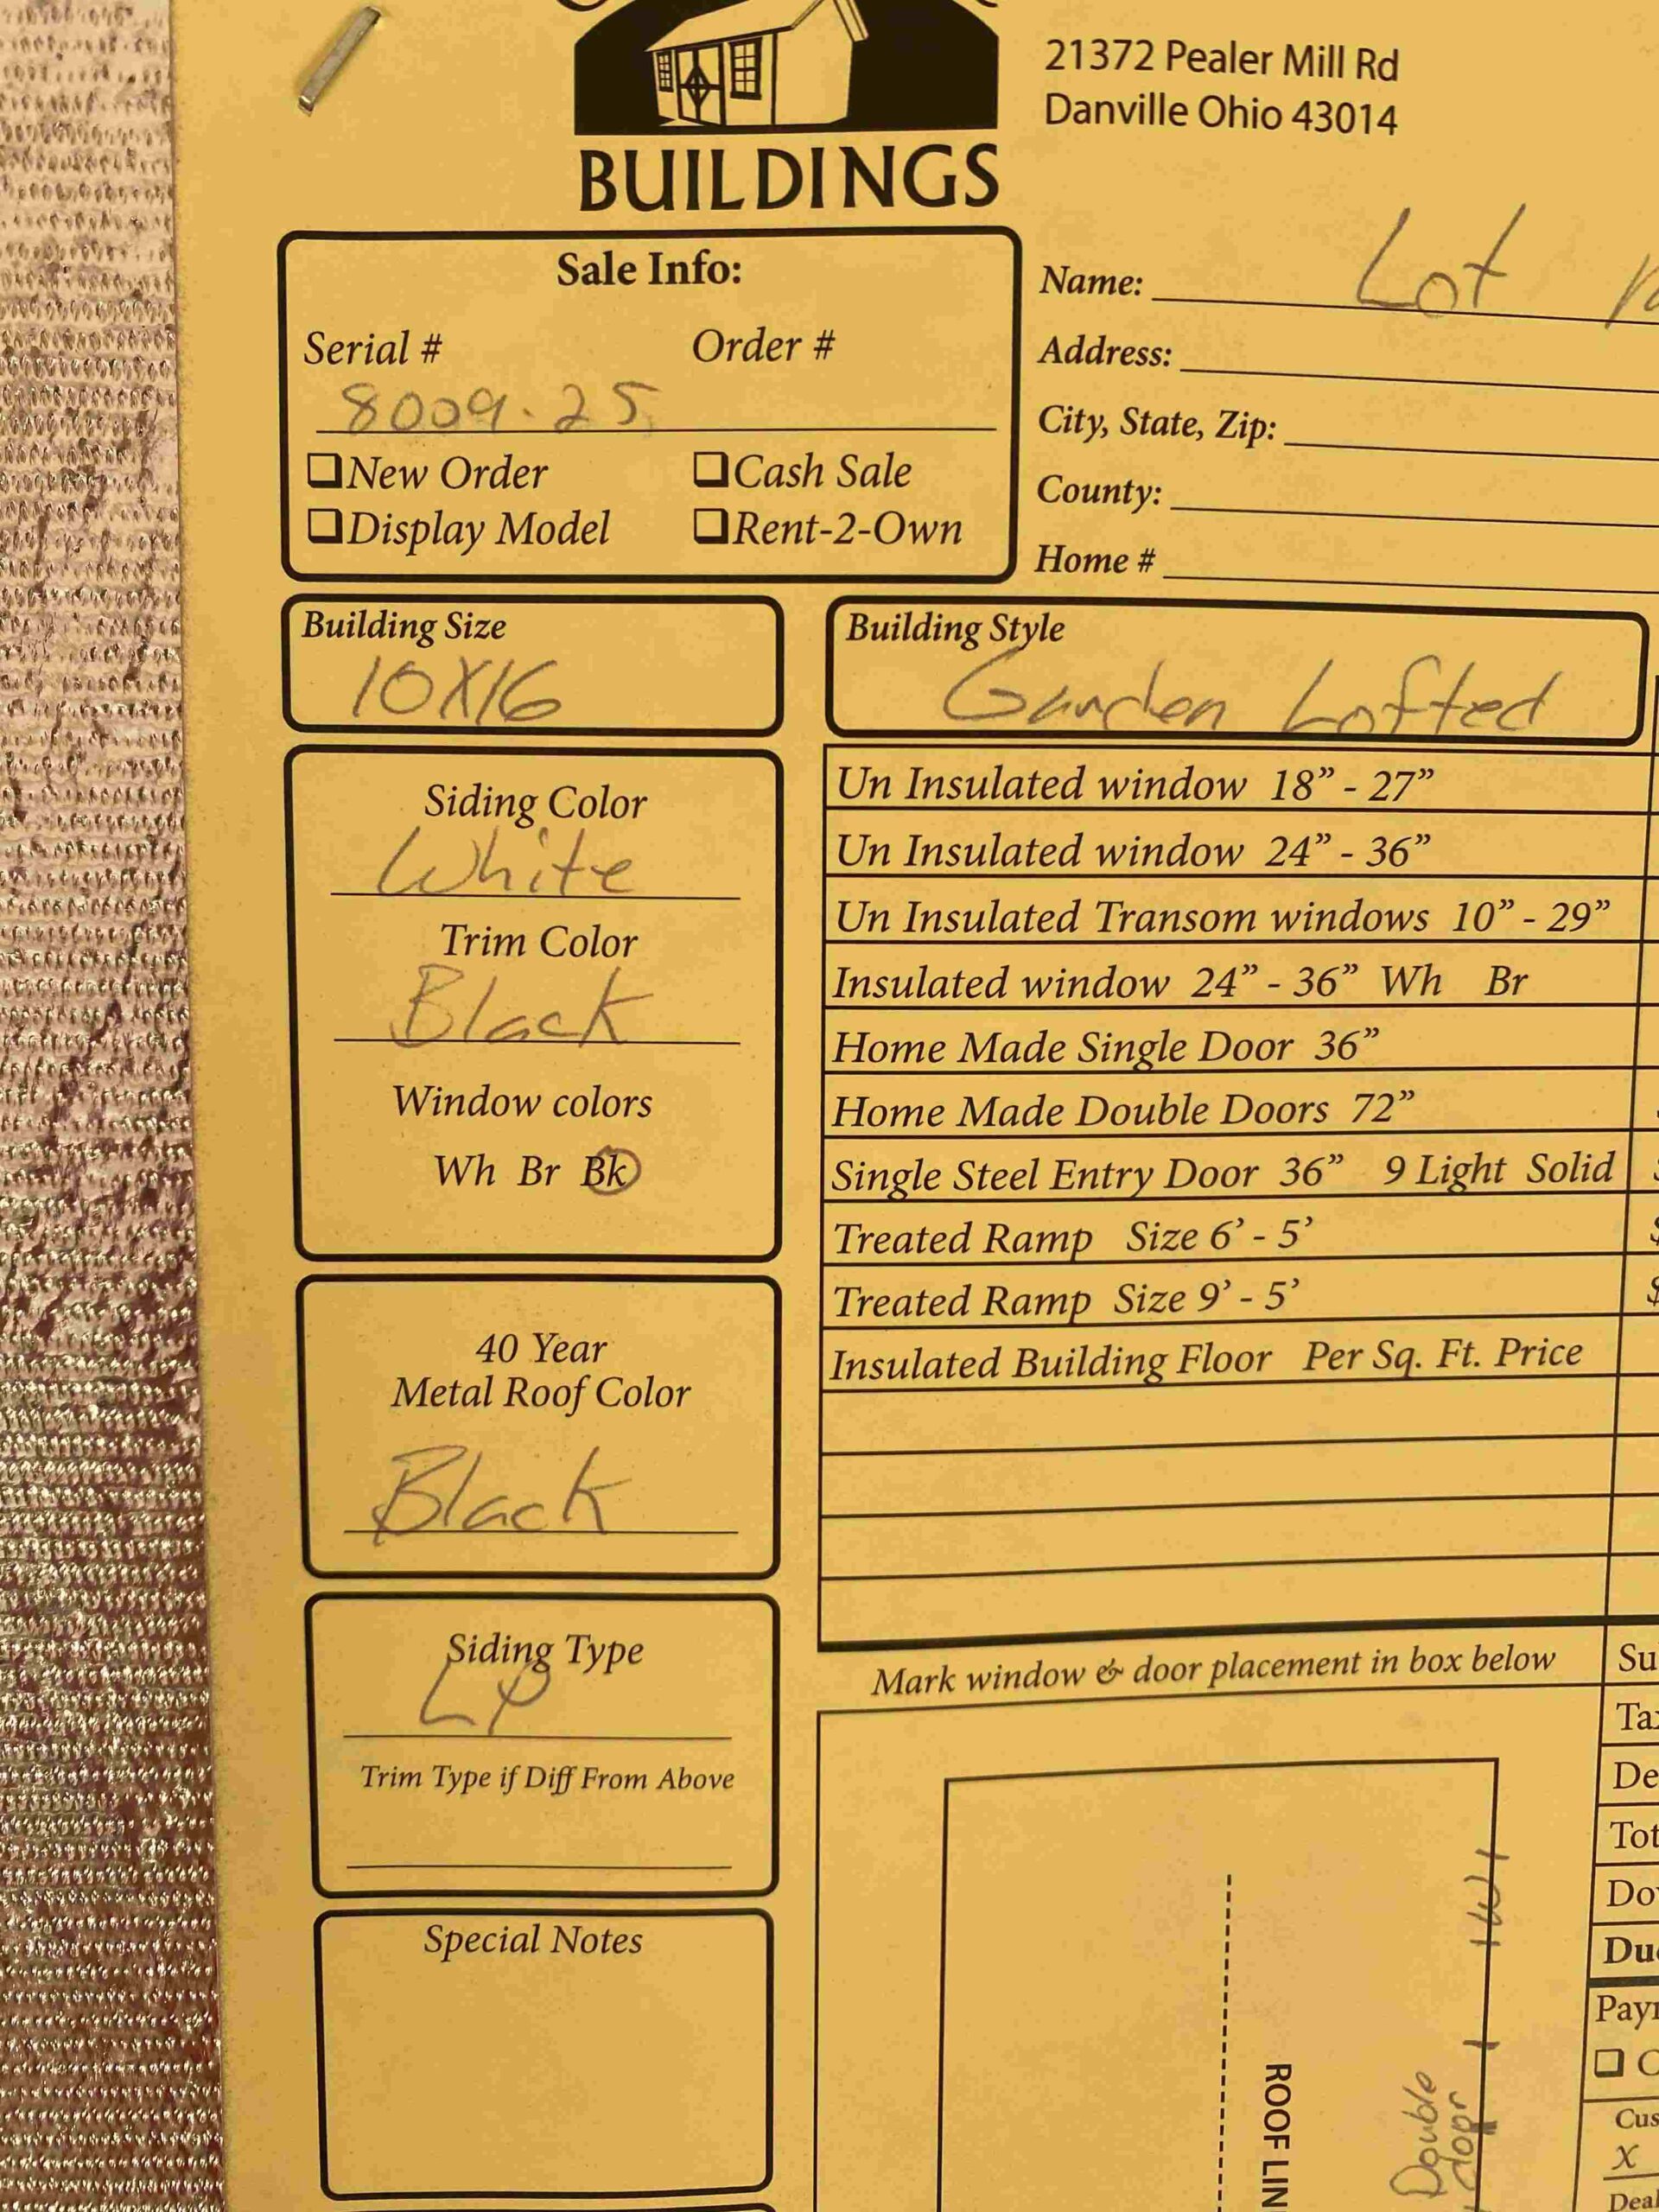 21372 Pealer Mill Rd
Danville Ohio 43014
BUILDINGS
Sale Info:
Serial # Order #
8009.25
❑New Order ❑Cash Sale
❑Display Model ❑Rent-2-Own
Name: Lot
Address:
City, State, Zip:
County:
Home #
Building Size
10X16
Building Style
Garden Lofted
Siding Color
White
Trim Color
Black
Window colors
Wh Br Bk
40 Year
Metal Roof Color
Black
Siding Type
LP
Trim Type if Diff From Above
Special Notes
Un Insulated window 18” - 27”
Un Insulated window 24” - 36”
Un Insulated Transom windows 10” - 29”
Insulated window 24” - 36” Wh Br
Home Made Single Door 36”
Home Made Double Doors 72”
Single Steel Entry Door 36” 9 Light Solid
Treated Ramp Size 6’ - 5’ $
Treated Ramp Size 9’ - 5’ $
Insulated Building Floor Per Sq. Ft. Price
Mark window & door placement in box below
W
Double
door
ROOF LIN
Su
Tax
De
Tot
Do
Du
Pay
❑ C
Cus
X
Deal